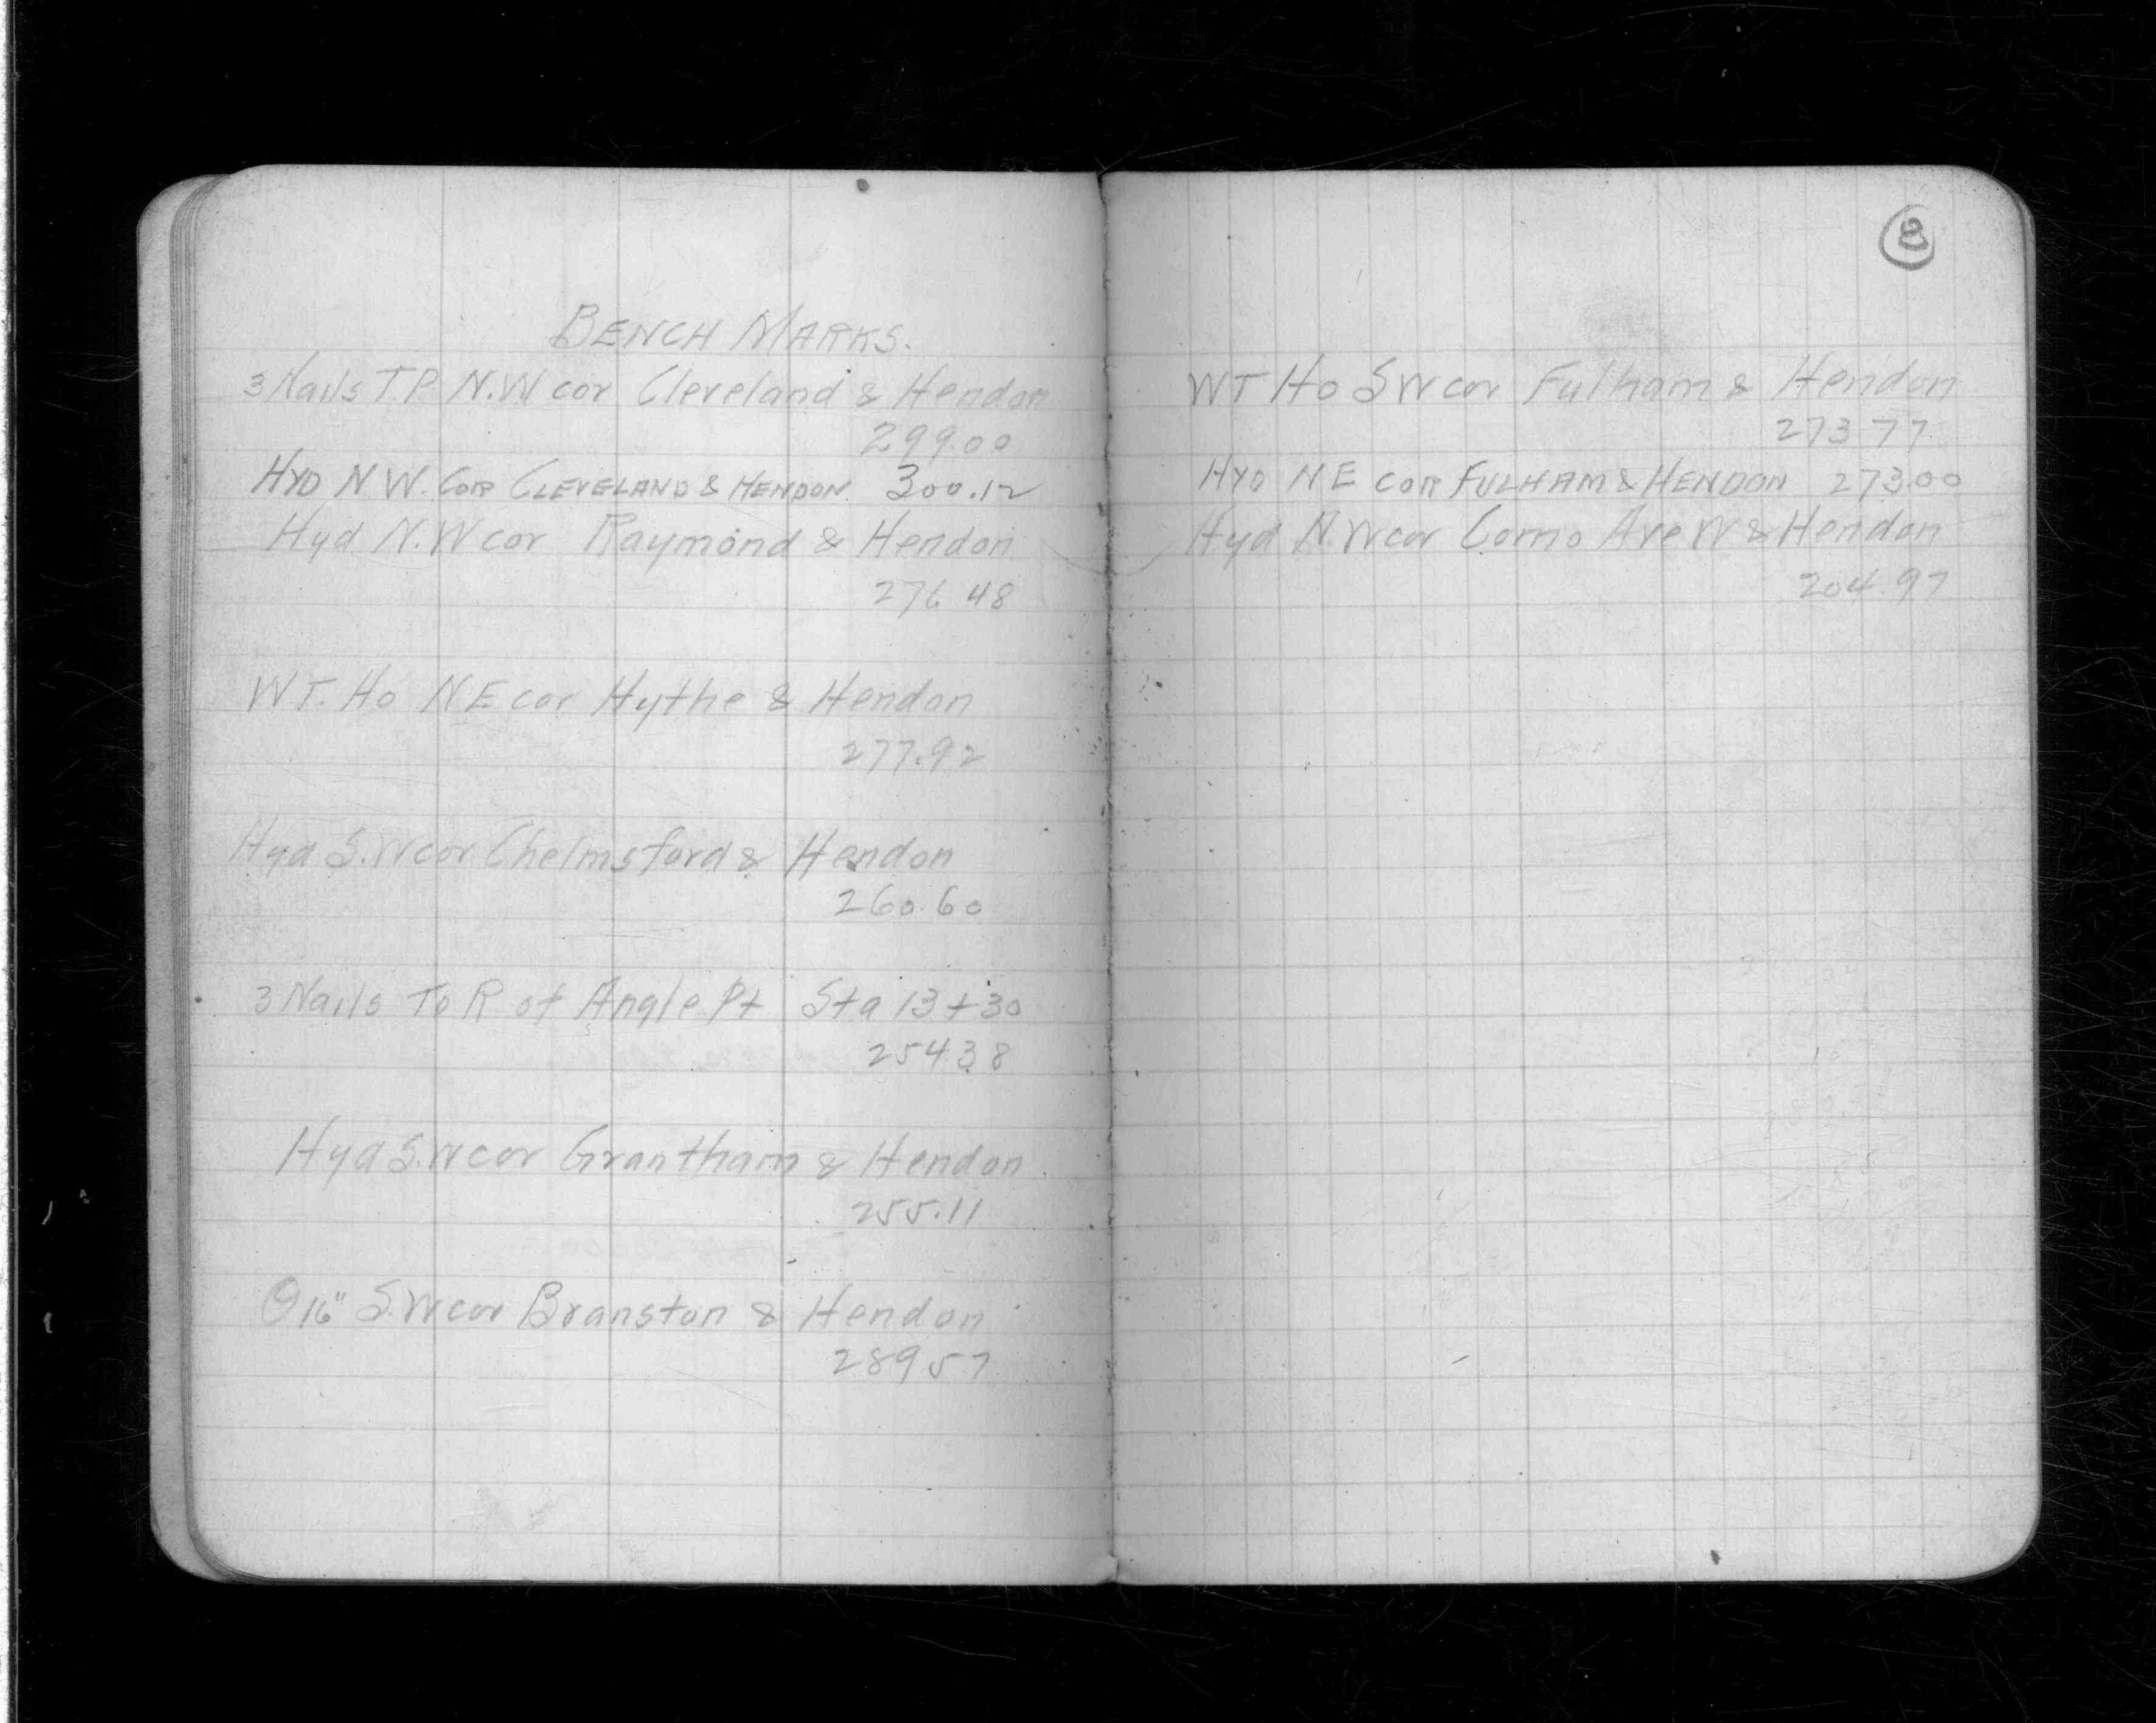 BENCH MARKS.
3 Nails T.P. N.W cor Cleveland & Hendon
299.00
HYD N W. COR CLEVELAND & HENDON 300.12
Hyd N.W cor Raymond & Hendon
276 48
WT. Ho NE cor Hythe & Hendon
277.92
Hyd S.W cor Chelmsford & Hendon
260.60
3 Nails To R of Angle Pt Sta 13+30
254.38
Hyd S.W cor Grantham & Hendon
255.11
16" S.W cor Branston & Hendon
289 57
8
WT Ho SW cor Fulham & Hendon
273 77
HYD NE COR FULHAM & HENDON 273.00
Hyd N.W cor Como Ave W & Hendon
204.97